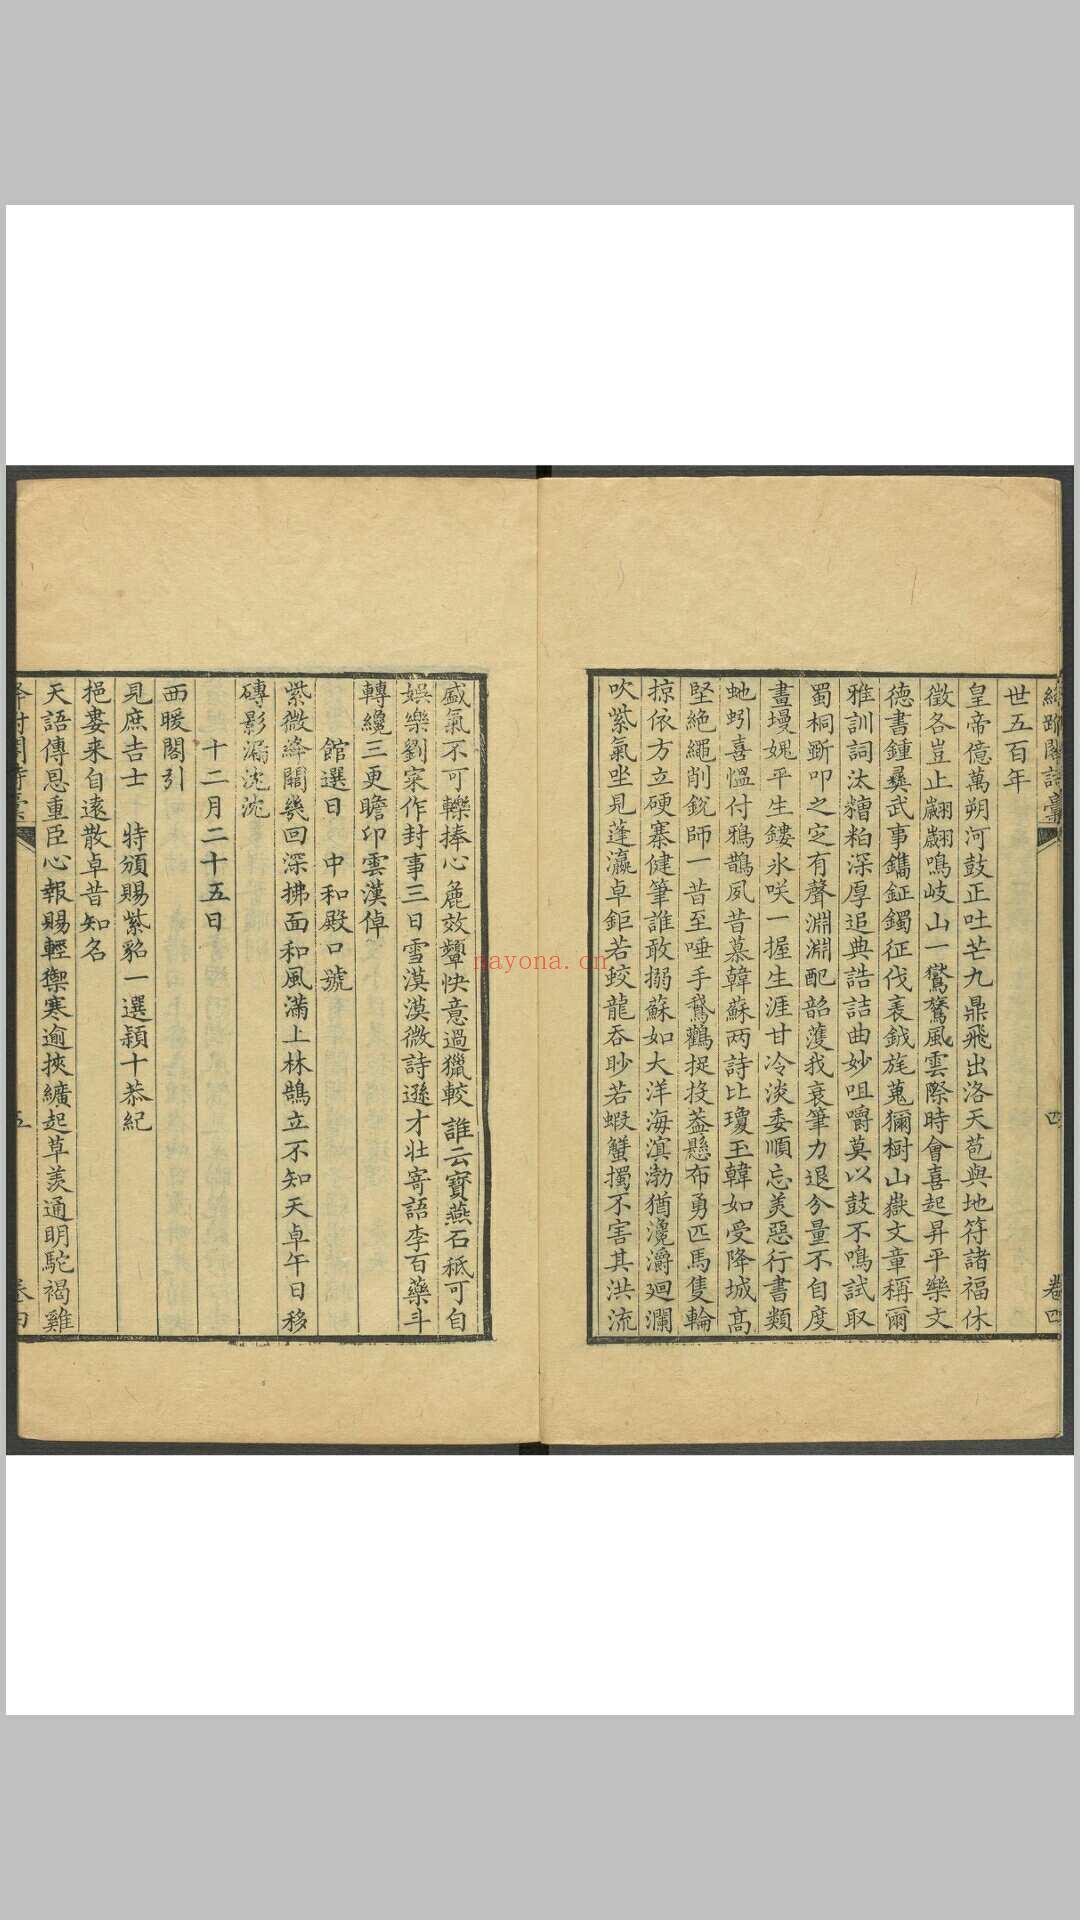 世五百年
皇帝億萬朔河鼓正吐芒九鼎飛出洛天苞與地符諸福休
徵各豈止翽翽鳴岐山一鸑鷟風雲際時會喜起昇平樂文
德書鍾彝武事鐫鉦鐲征伐袤鉞旄蒐獮樹山嶽文章稱爾
雅訓詞汰糟粕深厚追典誥詰曲妙咀嚼莫以鼓不鳴試取
蜀桐斲叩之定有聲淵淵配韶濩我衰筆力退分量不自度
畫墁媿平生鏤氷咲一握生涯甘冷淡委順忘美惡行書類
虵蚓喜愠付鴉鵲夙昔慕韓蘇两詩比瓊玉韓如受降城髙
堅絶繩削銳師一昔至唾手鵞鸛捉投葢懸布勇匹馬隻輪
掠依方立硬寨健筆誰敢搦蘇如大洋海滇渤猶瀺灂廻瀾
吹紫氣坐見蓬瀛卓鉅若蛟龍吞眇若蝦蟹擉不害其洪流
盛氣不可轢捧心麄效顰快意過獵較誰云寳燕石秪可自
娛樂劉寀作封事三日雪漠漠微詩遜才壯寄語李百藥斗
轉纔三更瞻卬雲漢倬
館選日 中和殿口號
紫微絳闕㡬回深拂面和風滿上林鵠立不知天卓午日移
磚影漏沈沈
十二月二十五日
西暖閣引
見庶吉士 特頒賜紫貂一選穎十恭紀
挹婁来自遠散卓昔知名
天語傳恩重臣心報賜輕禦寒逾挾纊起草羨通明駝褐雞
五
卷四
四
卷四